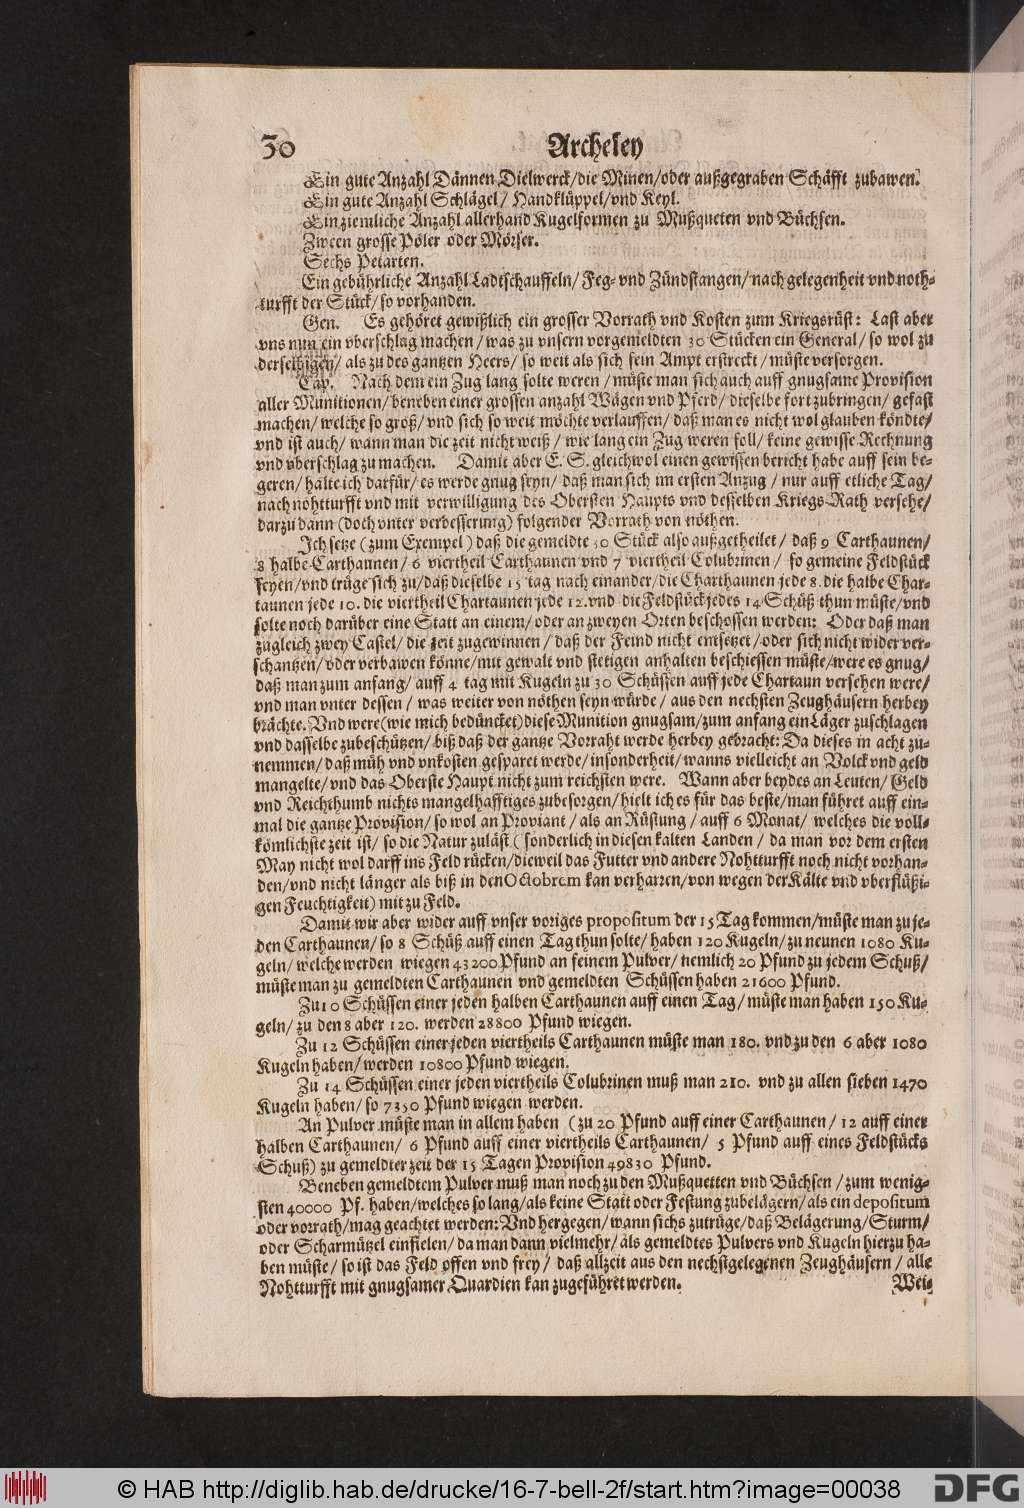 30 Archeley
Ein gute Anzahl Dännen Dielwerck/die Minen/oder außgegraben Schäfft zubawen.
Ein gute Anzahl Schlägel/ Handklüppel/vnd Keyl.
Ein ziemliche Anzahl allerhand Kugelformen zu Mußqueten vnd Büchsen.
Zween grosse Pöler oder Mörser.
Sechs Petarten.
Ein gebührliche Anzahl Ladtschauffeln/ Feg- vnd Zündstangen/ nach gelegenheit vnd noth-
turfft der Stück/ so vorhanden.
Gen. Es gehöret gewißlich ein grosser Vorrath vnd Kosten zum Kriegsrüst: Last aber
vns nun ein vberschlag machen/ was zu vnsern vorgemeldten 30 Stücken ein General/ so wol zu
derselbigen/ als zu des gantzen Heers/ so weit als sich sein Ampt erstreckt/ müste versorgen.
Cap. Nach dem ein Zug lang solte weren/ müste man sich auch auff gnugsame Provision
aller Munitionen/ beneben einer grossen anzahl Wägen vnd Pferd/ dieselbe fort zubringen/ gefast
machen/ welche so groß/ vnd sich so weit möchte verlauffen/ daß man es nicht wol glauben köndte/
vnd ist auch/ wann man die zeit nicht weiß/ wie lang ein Zug weren soll/ keine gewisse Rechnung
vnd vberschlag zu machen. Damit aber E. S. gleichwol einen gewissen bericht habe auff sein be-
geren/ halte ich darfür/ es werde gnug seyn/ daß man sich im ersten Anzug/ nur auff etliche Tag/
nach nohtturfft vnd mit verwilligung des Obersten Haupts vnd desselben Kriegs-Rath versehe/
darzu dann (doch vnter verbesserung) folgender Vorrath von nöthen.
Ich setze (zum Exempel) daß die gemeldte 30 Stück also außgetheilet/ daß 9 Carthaunen/
8 halbe Carthaunen/ 6 viertheil Carthaunen vnd 7 viertheil Colubrinen/ so gemeine Feldstück
seyen/ vnd trüge sich zu/ daß dieselbe 15 tag nach einander/ die Charthaunen jede 8. die halbe Char-
taunen jede 10. die viertheil Chartaunen jede 12. vnd die Feldstück jedes 14 Schüß thun müste/ vnd
solte noch darüber eine Statt an einem/ oder an zweyen Orten beschossen werden: Oder daß man
zugleich zwey Castel/ die zeit zugewinnen/ daß der Feind nicht entsetzet/ oder sich nicht wider ver-
schantzen/ oder verbawen könne/ mit gewalt vnd stetigen anhalten beschiessen müste/ were es gnug/
daß man zum anfang/ auff 4 tag mit Kugeln zu 30 Schüssen auff jede Chartaun versehen were/
vnd man vnter dessen/ was weiter von nöthen seyn würde/ aus den nechsten Zeughäusern herbey
brächte. Vnd were (wie mich bedüncket) diese Munition gnugsam/ zum anfang ein Läger zuschlagen
vnd dasselbe zubeschützen/ biß daß der gantze Vorraht werde herbey gebracht: Da dieses in acht zu-
nemmen/ daß müh vnd vnkosten gesparet werde/ insonderheit/ wanns vielleicht an Volck vnd geld
mangelte/ vnd das Oberste Haupt nicht zum reichsten were. Wann aber beydes an Leuten/ Geld
vnd Reichthumb nichts mangelhafftiges zubesorgen/ hielt ich es für das beste/ man führet auff ein-
mal die gantze Provision/ so wol an Proviant/ als an Rüstung/ auff 6 Monat/ welches die voll-
kömlichste zeit ist/ so die Natur zuläst (sonderlich in diesen kalten Landen/ da man vor dem ersten
May nicht wol darff ins Feld rücken/ dieweil das Futter vnd andere Nohtturfft noch nicht vorhan-
den/ vnd nicht länger als biß in den Octobrem kan verharren/ von wegen der Kälte vnd vberflüßi-
gen Feuchtigkeit) mit zu Feld.
Damit wir aber wider auff vnser voriges propositum der 15 Tag kommen/ müste man zu je-
den Carthaunen/ so 8 Schüß auff einen Tag thun solte/ haben 120 Kugeln/ zu neunen 1080 Ku-
geln/ welche werden wiegen 43200 Pfund an feinem Pulver/ nemlich 20 Pfund zu jedem Schuß/
müste man zu gemeldten Carthaunen vnd gemeldten Schüssen haben 21600 Pfund.
Zu 10 Schüssen einer jeden halben Carthaunen auff einen Tag/ müste man haben 150 Ku-
geln/ zu den 8 aber 120. werden 28800 Pfund wiegen.
Zu 12 Schüssen einer jeden viertheils Carthaunen müste man 180. vnd zu den 6 aber 1080
Kugeln haben/ werden 10800 Pfund wiegen.
Zu 14 Schüssen einer jeden viertheils Colubrinen muß man 210. vnd zu allen sieben 1470
Kugeln haben/ so 7350 Pfund wiegen werden.
An Pulver müste man in allem haben (zu 20 Pfund auff einer Carthaunen/ 12 auff einer
halben Carthaunen/ 6 Pfund auff einer viertheils Carthaunen/ 5 Pfund auff eines Feldstücks
Schuß) zu gemeldter zeit der 15 Tagen Provision 49830 Pfund.
Beneben gemeldtem Pulver muß man noch zu den Mußquetten vnd Büchsen/ zum wenig-
sten 40000 Pf. haben/ welches so lang/ als keine Statt oder Festung zubelägern/ als ein depositum
oder vorrath/ mag geachtet werden: Vnd hergegen/ wann sichs zutrüge/ daß Belägerung/ Sturm/
oder Scharmützel einfielen/ da man dann vielmehr/ als gemeldtes Pulvers vnd Kugeln hierzu ha-
ben müste/ so ist das Feld offen vnd frey/ daß allzeit aus den nechstgelegenen Zeughäusern/ alle
Nohtturfft mit gnugsamer Quardien kan zugeführet werden. Wei-
© HAB http://diglib.hab.de/drucke/16-7-bell-2f/start.htm?image=00038 DFG